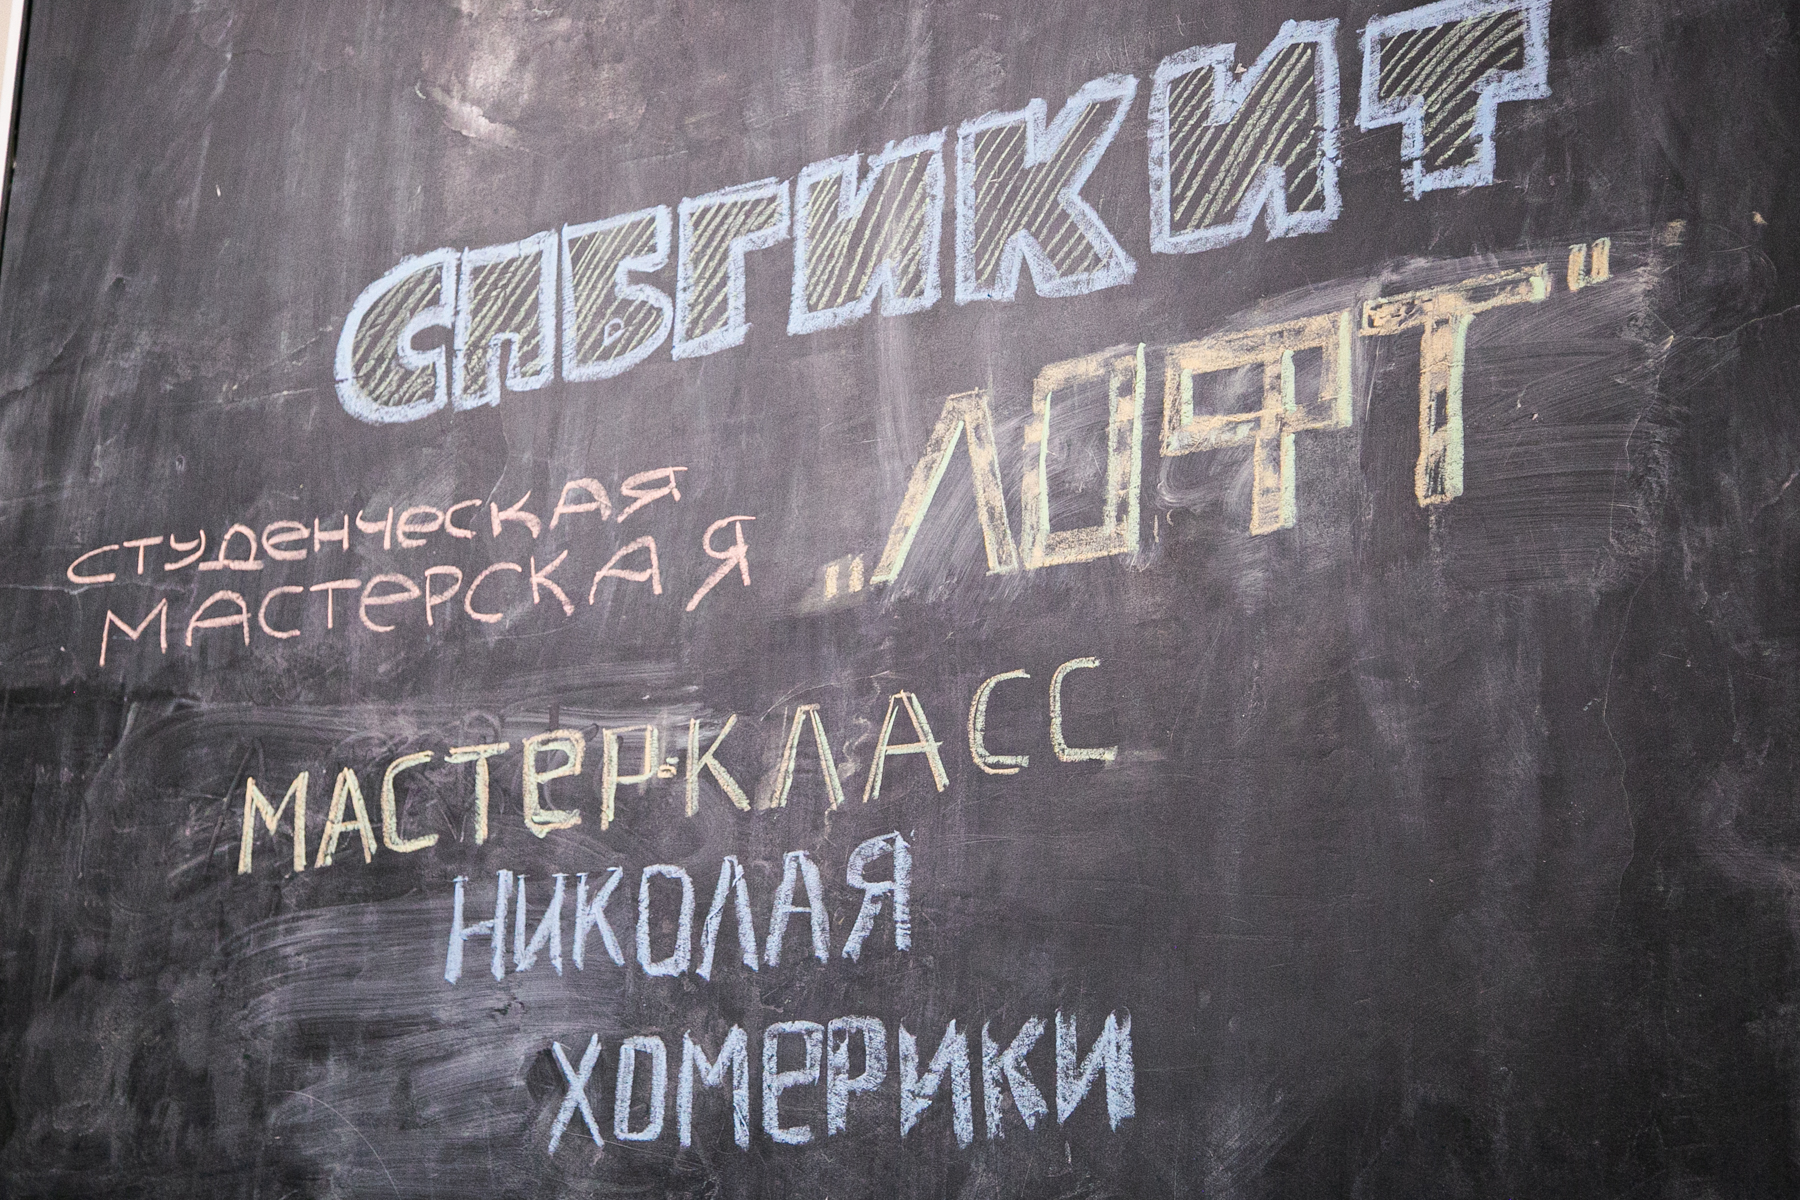 СПБГИКИТ
СТУДЕНЧЕСКАЯ
МАСТЕРСКАЯ „ЛОФТ"
МАСТЕР-КЛАСС
НИКОЛАЯ
ХОМЕРИКИ